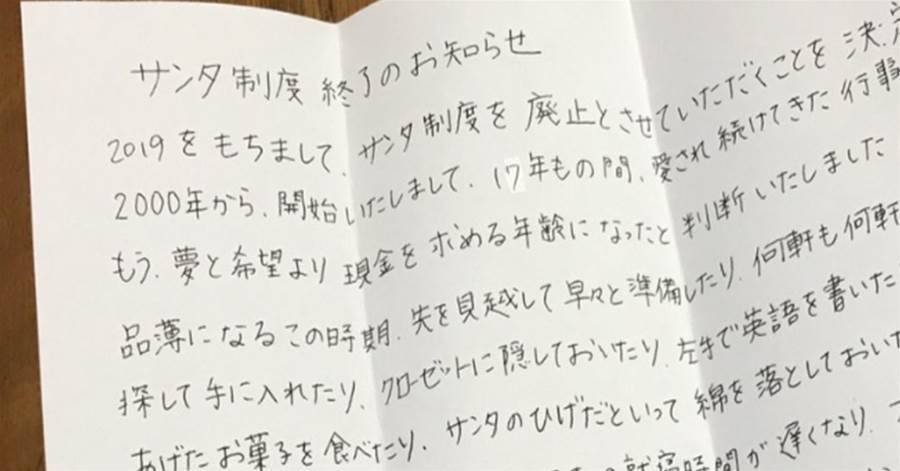 サンタ制度 終了のお知らせ
2019をもちまして、サンタ制度を廃止とさせていただくことを決定
2000年から、開始いたしまして、17年もの間、愛され続けてきた行事
もう、夢と希望より現金を求める年齢になったと判断いたしました
品薄になるこの時期、先を見越して早々と準備したり、何軒も何軒
探して手に入れたり、クローゼットに隠しておいたり、左手で英語を書いた
あげたお菓子を食べたり、サンタのひげだといって綿を落としておいた
就寝時間が遅くなり、